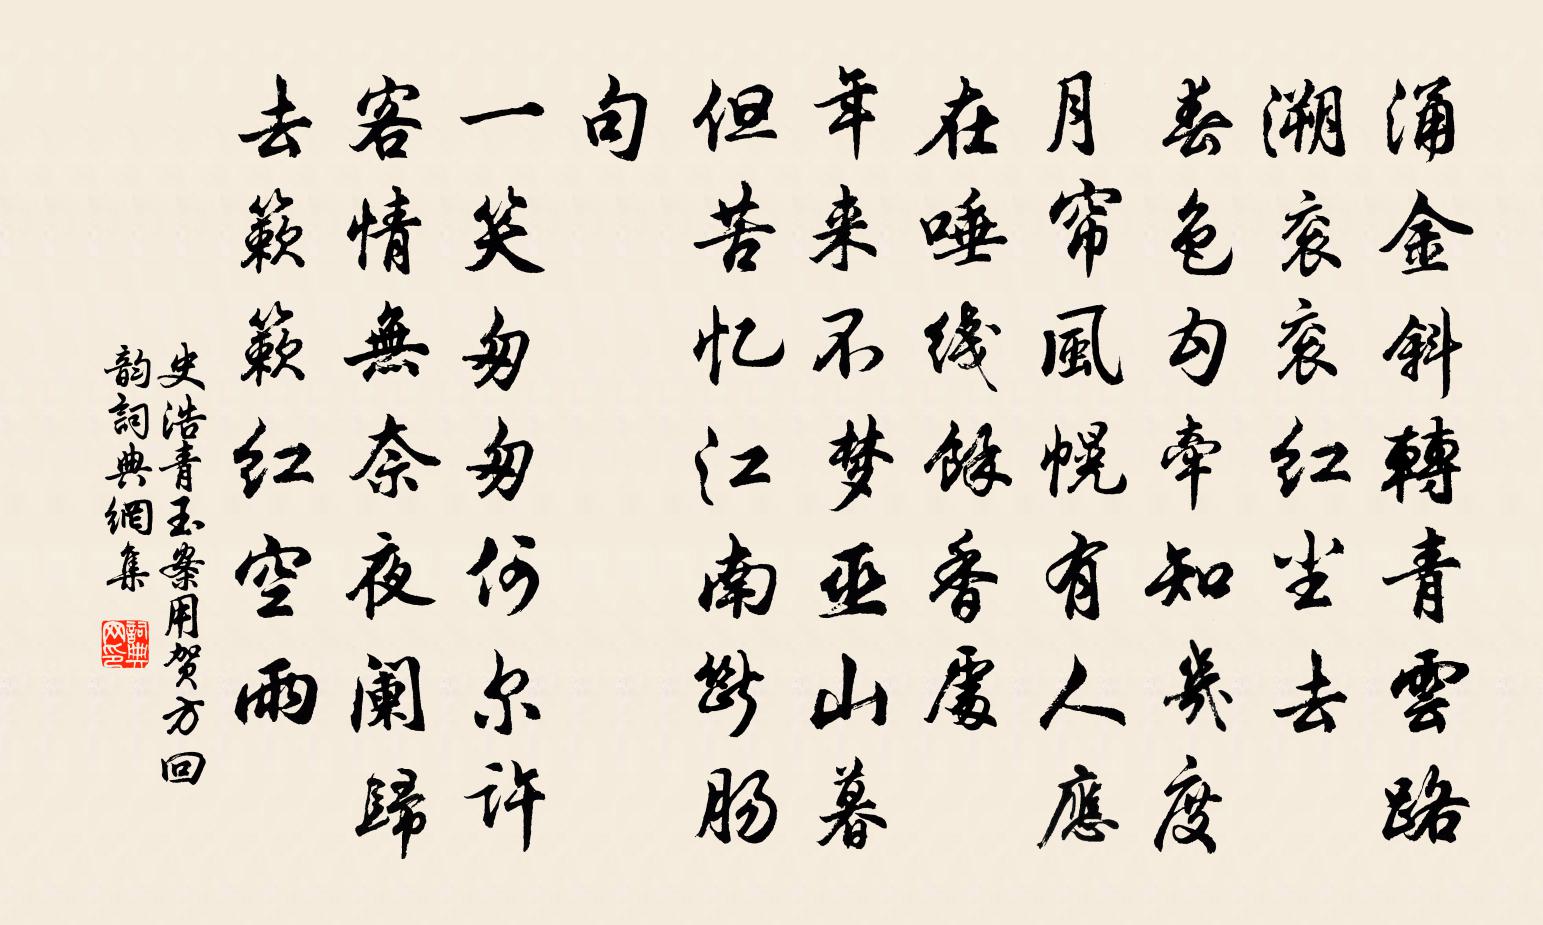 涌金斜轉青雲路
溯衮衮红尘去
春色勾牵知幾度
月帘風幌有人應
在唾线餘香處
年来不梦巫山暮
但苦忆江南斷肠
句
一笑匆匆何尔許
客情無奈夜阑歸
去簌簌红空雨
史浩青玉案用贺方回
韵詞典網集
詞典网印